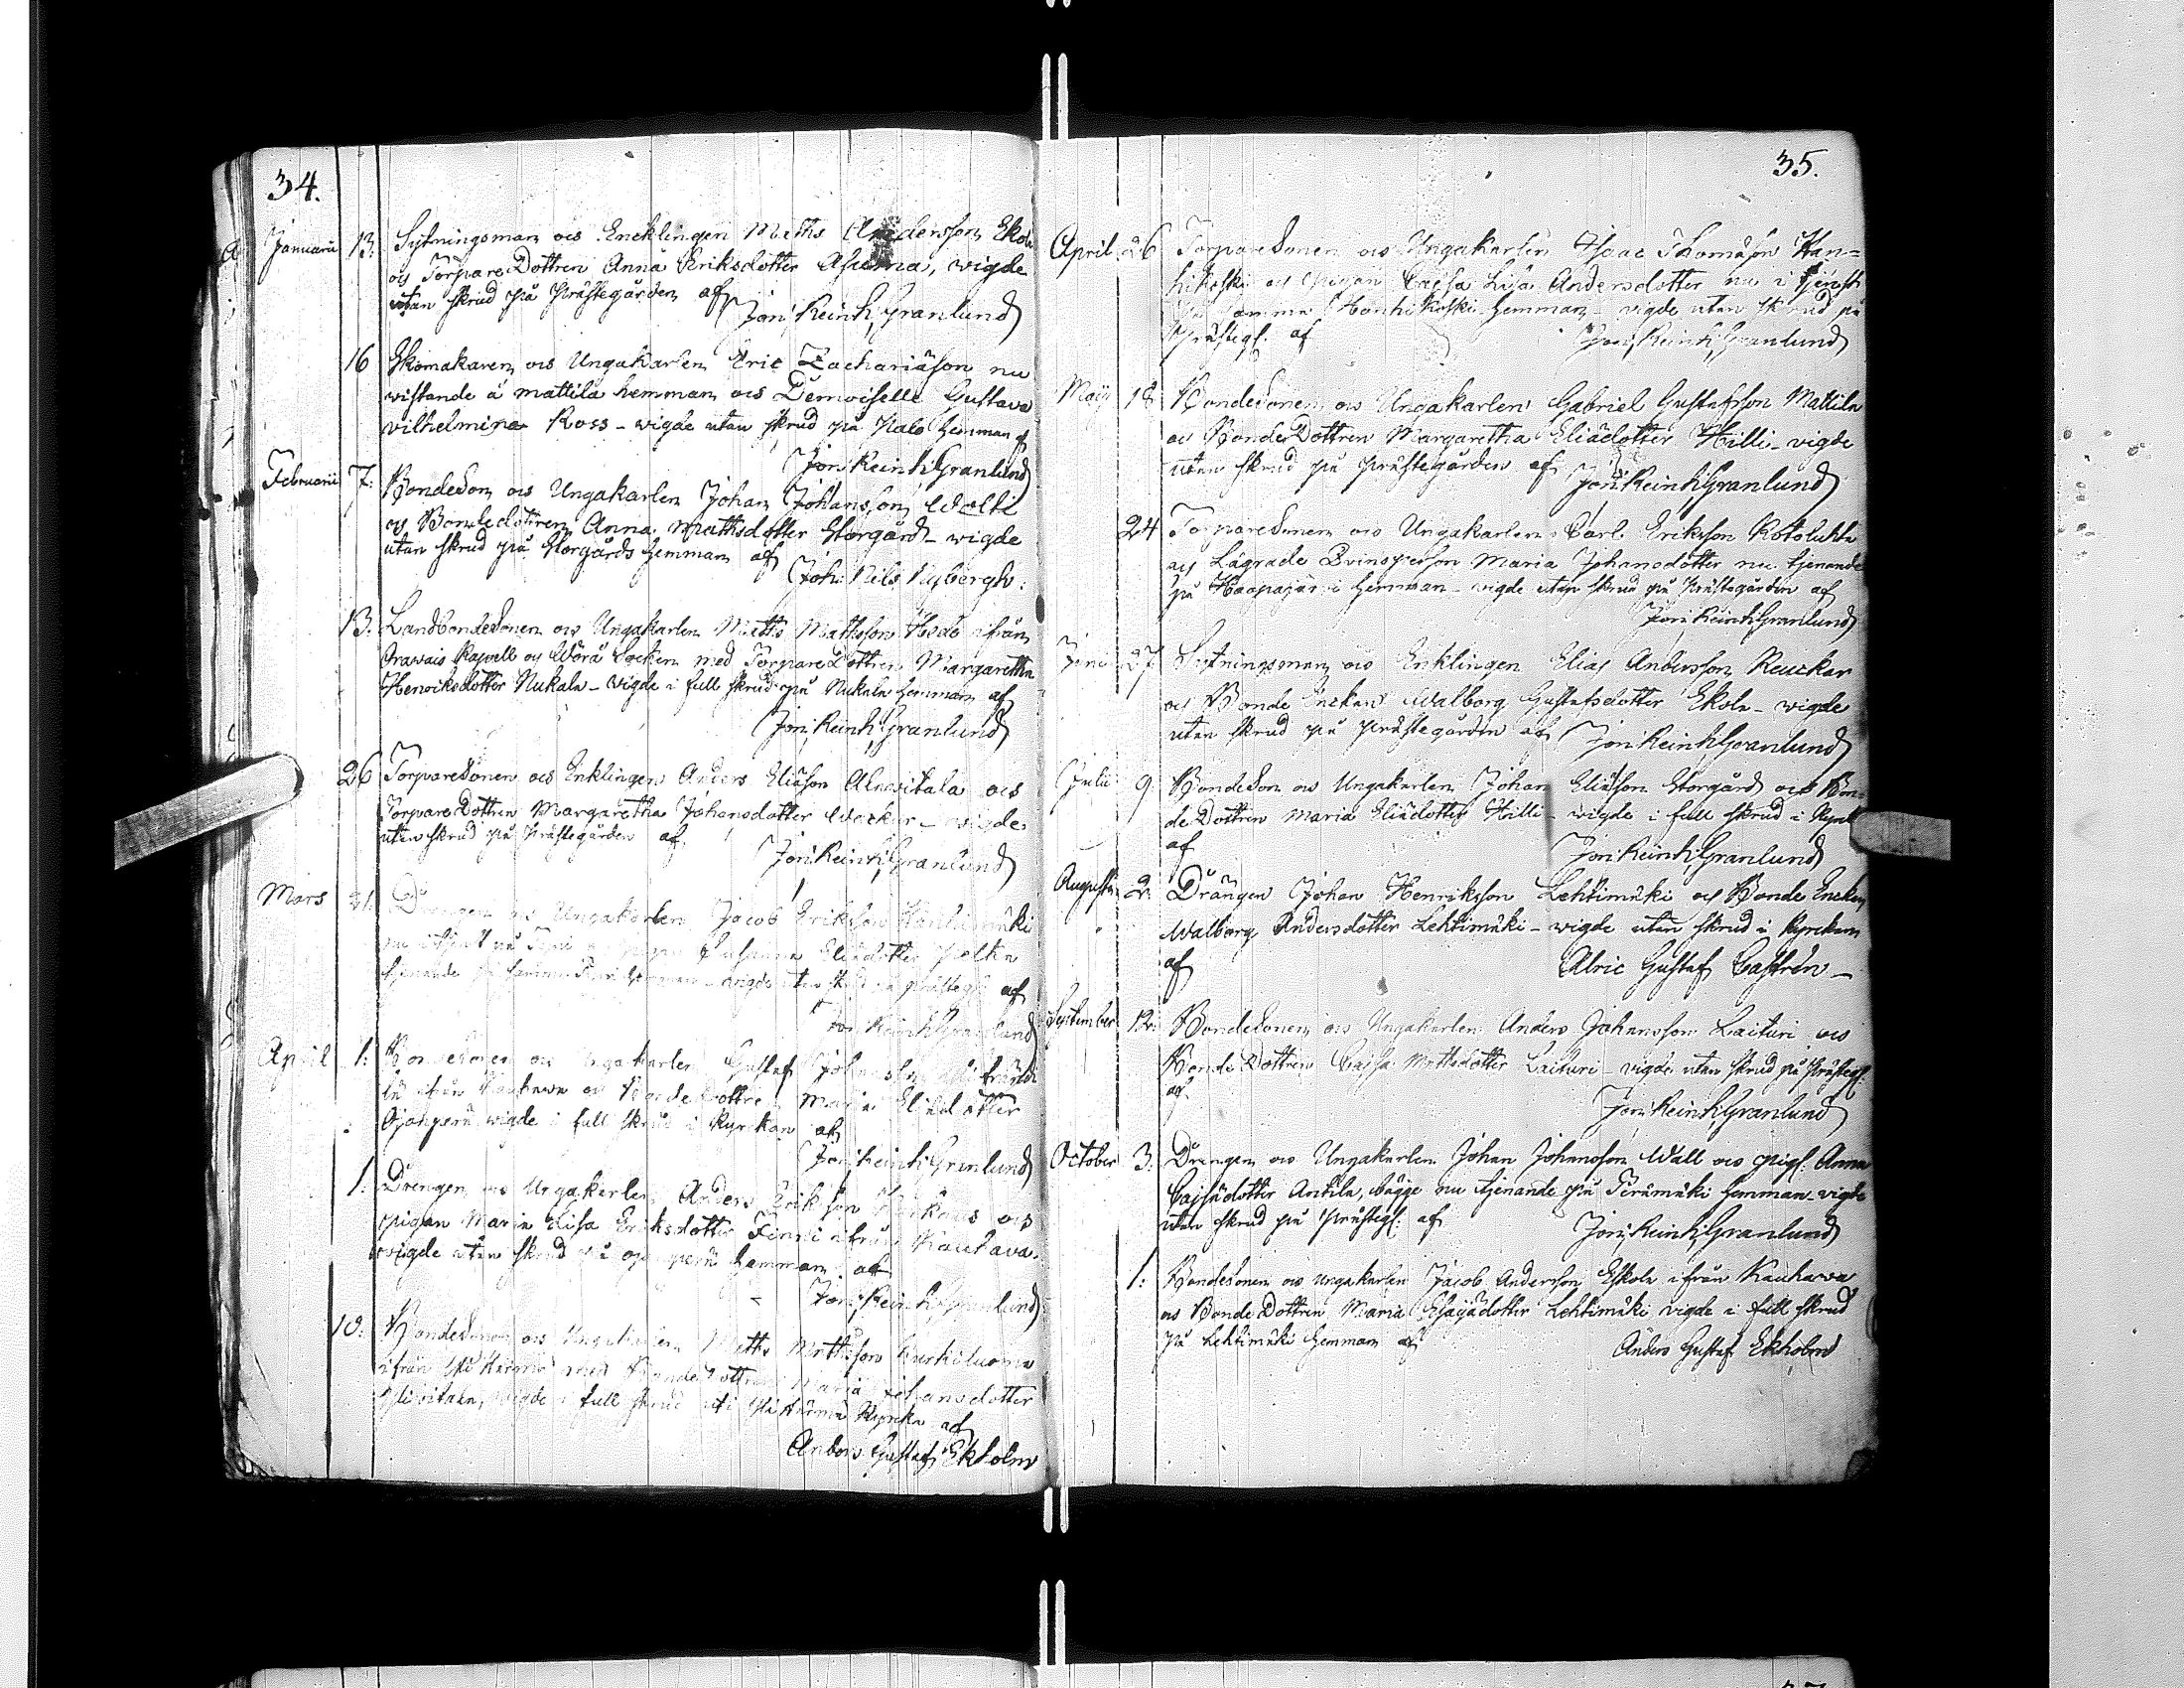 34.
Januarii 13. Sytningsman och Encklingen Matts Andersson Ekola
och Torpare Dottren Anna Eriksdotter Asuma, wigde
utan skrud på Prästegården af
Joh: Reinh: Granlund
16 Skomakaren och Ungakarlen Eric Zachariäson nu
wistande å Mattila hemman och Demoiselle Gustava
Vilhelmina Ross - wigde utan skrud på Palo Hemman af
Joh: Reinh: Granlund
Februarii 7: Bondeson och Ungakarlen Johan Johansson Wolti
och Bondedottren Anna Mathsdotter Storgård - wigde
utan skrud på Storgårds Hemman af
Joh: Nils Nybergh:
13. LandbondeSonen och Ungakarlen Matts Mathsson ifrån
Orawais Kapell og Wörå Socken med Torpare Dottren Margaretha
Henriksdotter Nukala - wigde i full skrud på Nukala Hemman af
Joh: Reinh: Granlund
26 TorpareSonen och Enklingen Anders Eliäson Alawitala och
Torpare Dottren Margaretha Johansdotter Wacker - wigde
utan skrud på Prästegården af
Joh: Reinh: Granlund
Mars 31. Drengen och Ungakarlen Jacob Eriksson
Susanna Eliädotter
tjenande på samma Hemman - wigde utan skrud på Prästeg: af
Joh: Reinh: Granlund
April 1: BondeSonen och Ungakarlen Gustaf Johansson
ifrån Kauhawa och Bonde Dottren Maria Eliädotter
Ojanperä wigde i full skrud i Kyrkan af
Joh: Reinh: Granlund
1: Drengen och Ungakarlen Anders Eriksson och
pigan Maria Lisa Eriksdotter Finni ifrån Kauhava.
wigde utan skrud på Ojanperä Hemman af
Joh: Reinh: Granlund
10: BondeSonen och Ungakarlen Matts Mathsson Kurkiluoma
ifrån Ylihärmä med Bonde Dottren Maria Johansdotter
Yliwitala, wigde i full skrud uti Ylihärmä Kyrcka af
Anders Gustaf Ekholm
35.
April 26 TorpareSonen och Ungakarlen Isaac Thomäson Han=
hikoski och Pigan Cajsa Lisa Andersdotter nu i tjenst
på samma Hanhikoski Hemman - wigde utan skrud på
Prästeg: af Joh: Reinh: Granlund
Maij 18 BondeSonen och Ungakarlen Gabriel Gustafsson Mattila
och Bonde Dottren Margaretha Eliädotter Hilli - vigde
utan skrud på prästegården af Joh: Reinh: Granlund
24 TorpareSonen och Ungakarlen Carl Eriksson Kotoluhta
och Lägrade Qvinsperson Maria Johansdotter nu tjenande
på Haapajärvi Hemman - wigde utan skrud på Prästegården af
Joh: Reinh: Granlund
Juni 27 Sytningsman och Enklingen Elias Andersson Renckar
och Bonde Enckan Walborg Gustafsdotter Ekola - wigde
utan skrud på Prästegården af Joh: Reinh: Granlund
Julii 9. BondeSon och Ungakarlen Johan Eliäson Storgård och Bon-
de Dottren Maria Eliädotter Hilli - wigde i full skrud i Kyrk
af Joh: Reinh: Granlund
Augusti 2. Drängen Johan Henriksson Lehtimäki och Bonde Enckan
Walborg Andersdotter Lehtimäki - wigde utan skrud i Kyrckan
af Alric Gustaf Castrén -
September 12. BondeSonen och Ungakarlen Anders Johansson Laituri och
Bonde Dottren Cajsa Mattsdotter Laituri - vigde utan skrud på Prästeg:
af.
Joh: Reinh: Granlund
October 3. Drengen och Ungakarlen Johan Johansson Wäll och pig: Anna
Cajsädotter Antila, bägge nu tjenande på Terämäki Hemman - vigde
utan skrud på Prästeg: af Joh: Reinh: Granlund
1: Bondesonen och ungakarlen Jacob Andersson Eskola ifrån Kauhawa
och Bonde Dottren Maria Esajädotter Lehtimäki vigde i full skrud
på Lehtimäki Hemman af Anders Gustaf Ekholm